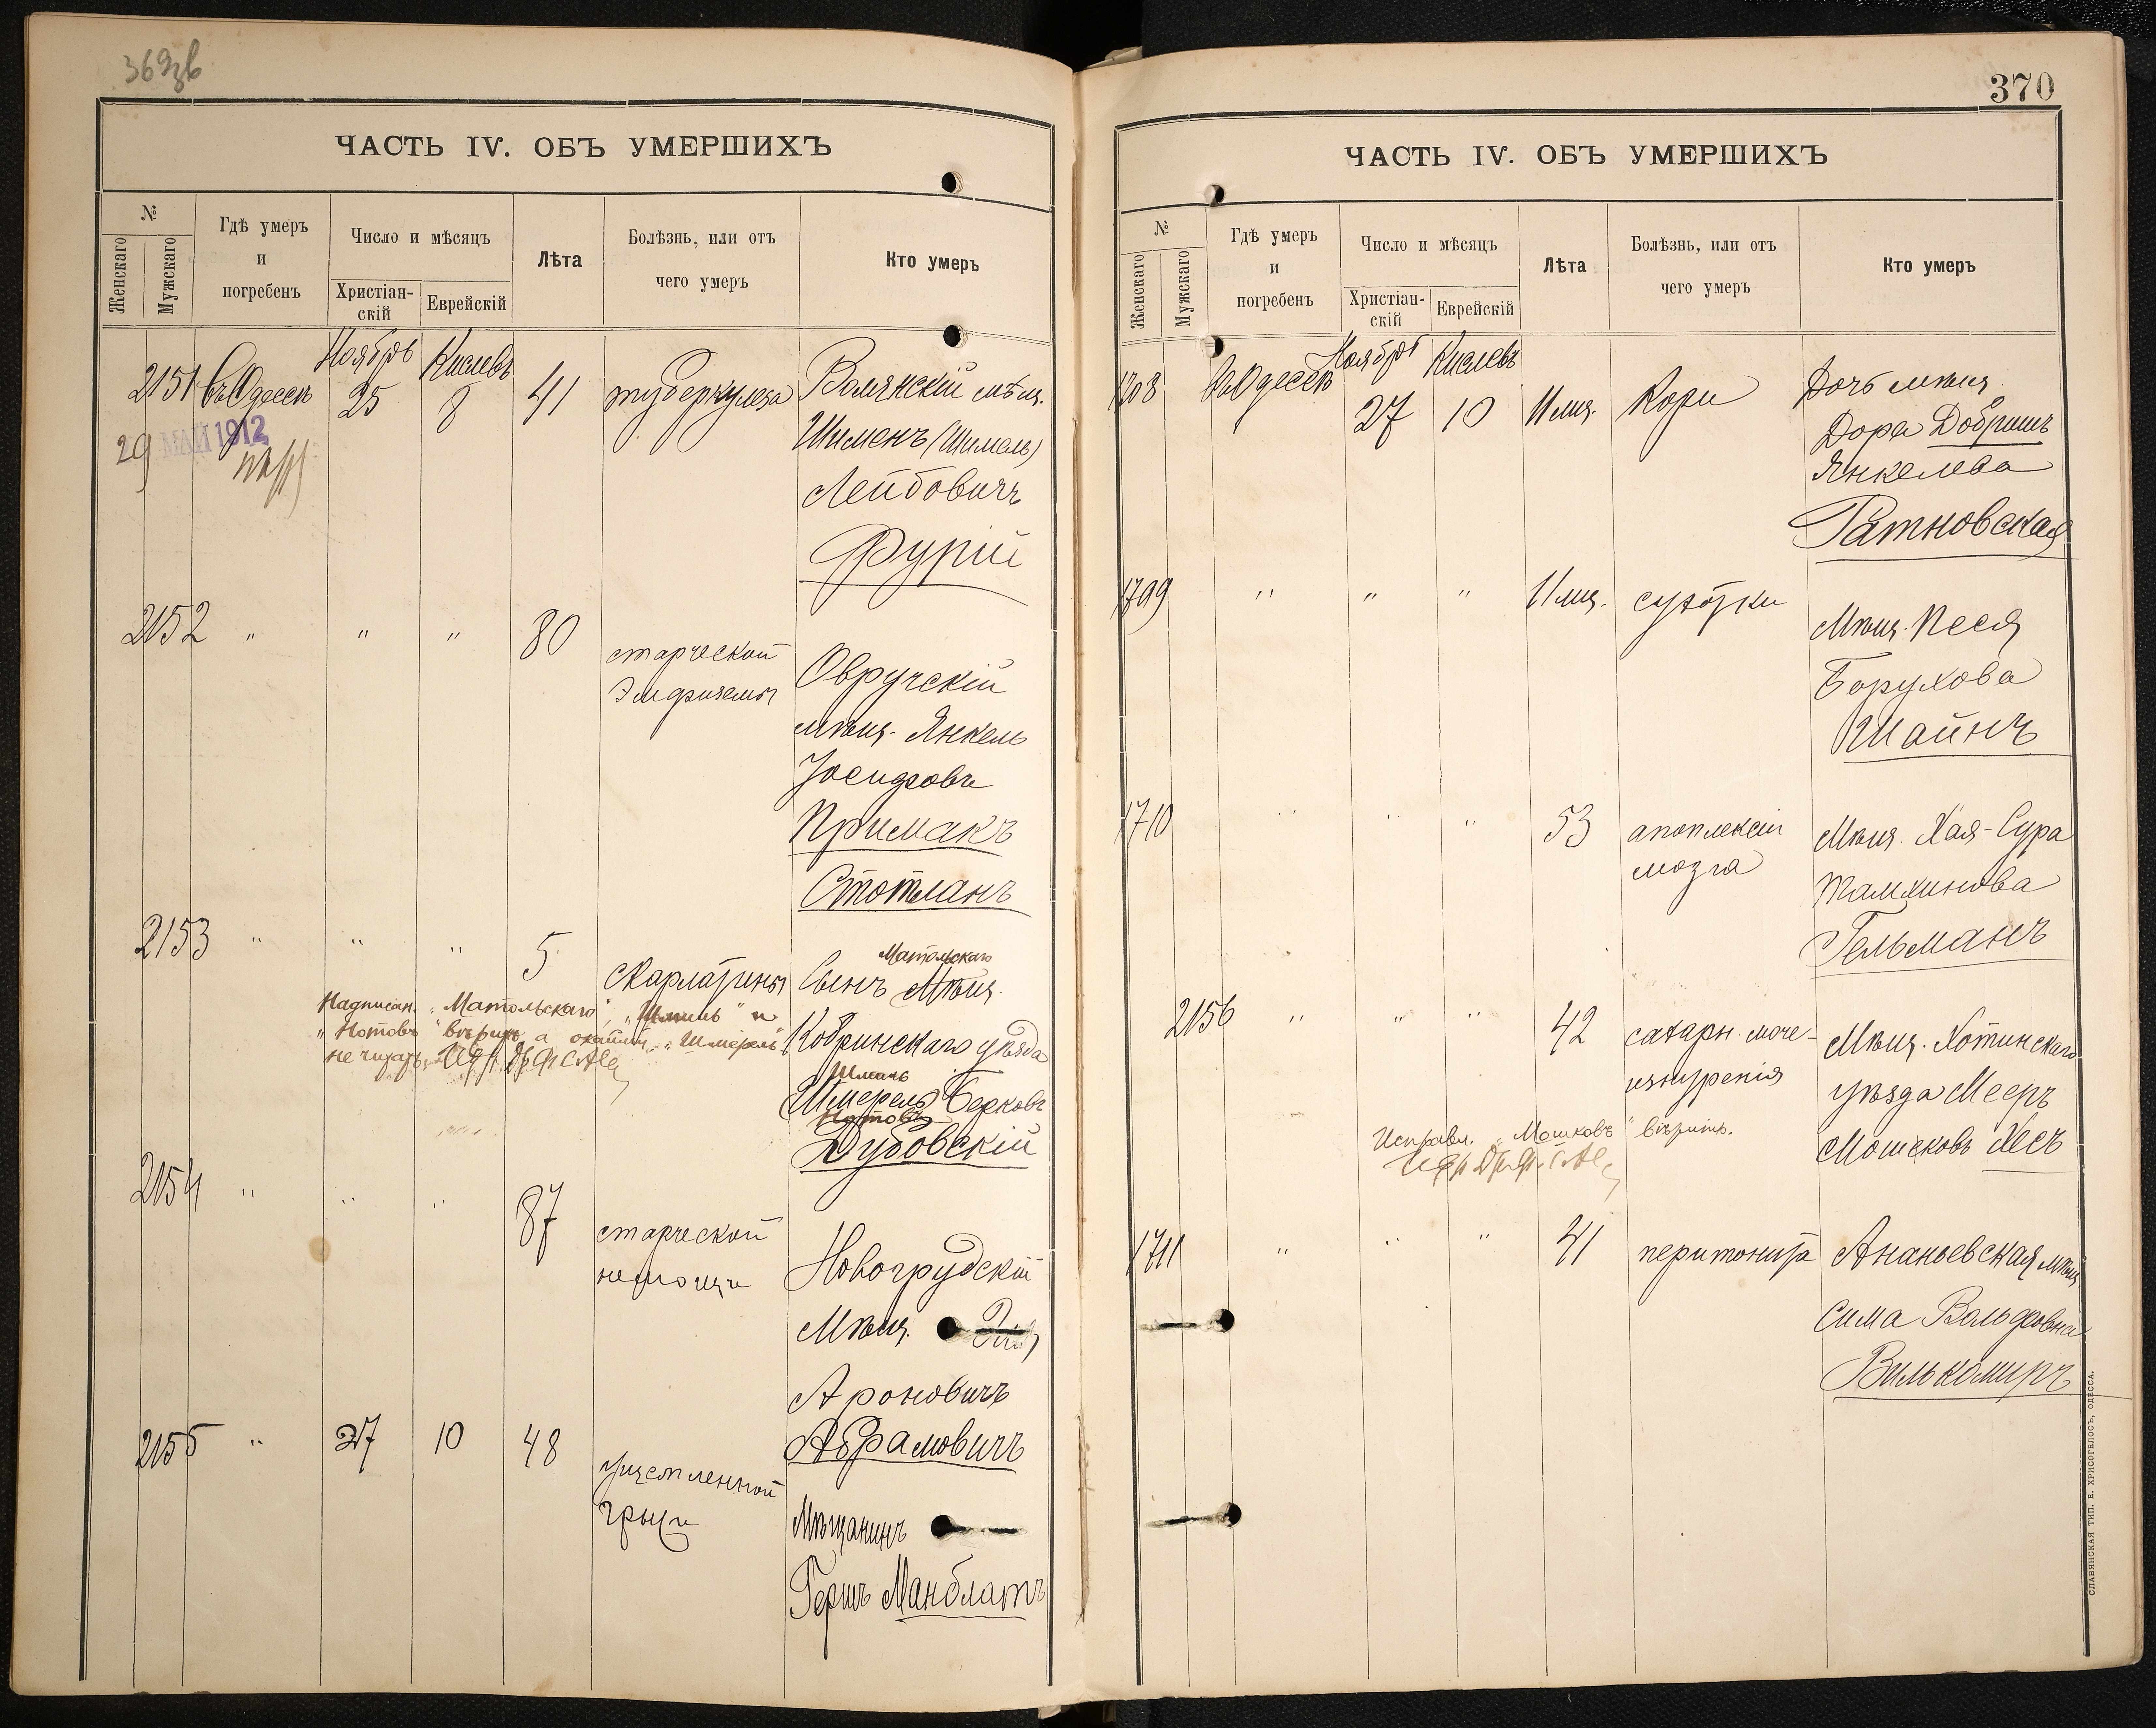 369зв
ЧАСТЬ IV. ОБЪ УМЕРШИХЪ
№
Женскаго
Мужскаго
Гдѣ умеръ
и
погребенъ
Число и мѣсяцъ
Христіан-
скій
Еврейскій
Лѣта
Болѣзнь, или отъ
чего умеръ
Кто умеръ
Ноябрь Кислевъ
2151 Въ Одессѣ 25 8 41 туберкулеза
мѣщ.
29 МАЙ 1912
Шименъ (Шимель)
Лейбовичъ
Фурій
2152 " " " 80 старческой
Эмфиземы
Овручскій
мѣщ. Янкель
Іосифовъ
Примакъ
Стотланъ
2153 " " " 5 Скарлатины
Матольскаго
Сынъ Мѣщ.
Кобринскаго уѣзда
Шмиль
Шмерель Берковъ
Нотовъ
Дубовскій
Надписан. "Матольскаго", "Шмиль" и
"Нотовъ" вѣрить, а "Шмерель"
не читать
2154 " " " 87 старческой
немощи
Новогрудскій
Мѣщ.
Ароновичъ
Абрамовичъ
2155 " 27 10 48 ущемленной
грыжи
Мѣщанинъ
Гершъ Манблатъ
370
ЧАСТЬ IV. ОБЪ УМЕРШИХЪ
№
Женскаго
Мужскаго
Гдѣ умеръ
и
погребенъ
Число и мѣсяцъ
Христіан-
скій
Еврейскій
Лѣта
Болѣзнь, или отъ
чего умеръ
Кто умеръ
Ноябрь Кислевъ
1708 Въ Одессѣ 27 10 11 мѣс. Кори
Дочь мѣщ.
Дора Добришъ
Янкелева
Ратновская
1709 " " " 11 мѣс. сухотки
Мѣщ. Песя
Борухова
Шайнъ
1710 " " " 53 апоплексіи
мозга
Мѣщ. Хая-Сура
Гельманъ
2156 " " " 42 сахарн. моче-
изнуренія
Мѣщ. Хотинскаго
уѣзда Мееръ
Мошковъ Хесъ
Исправл. "Мошковъ" вѣрить.
1711 " " " 41 перитонита
Ананьевская мѣщ.
Сима Вольфовна
Вилькомиръ
СЛАВЯНСКАЯ ТИП. Е. ХРИСОГЕЛОСЪ, ОДЕССА.